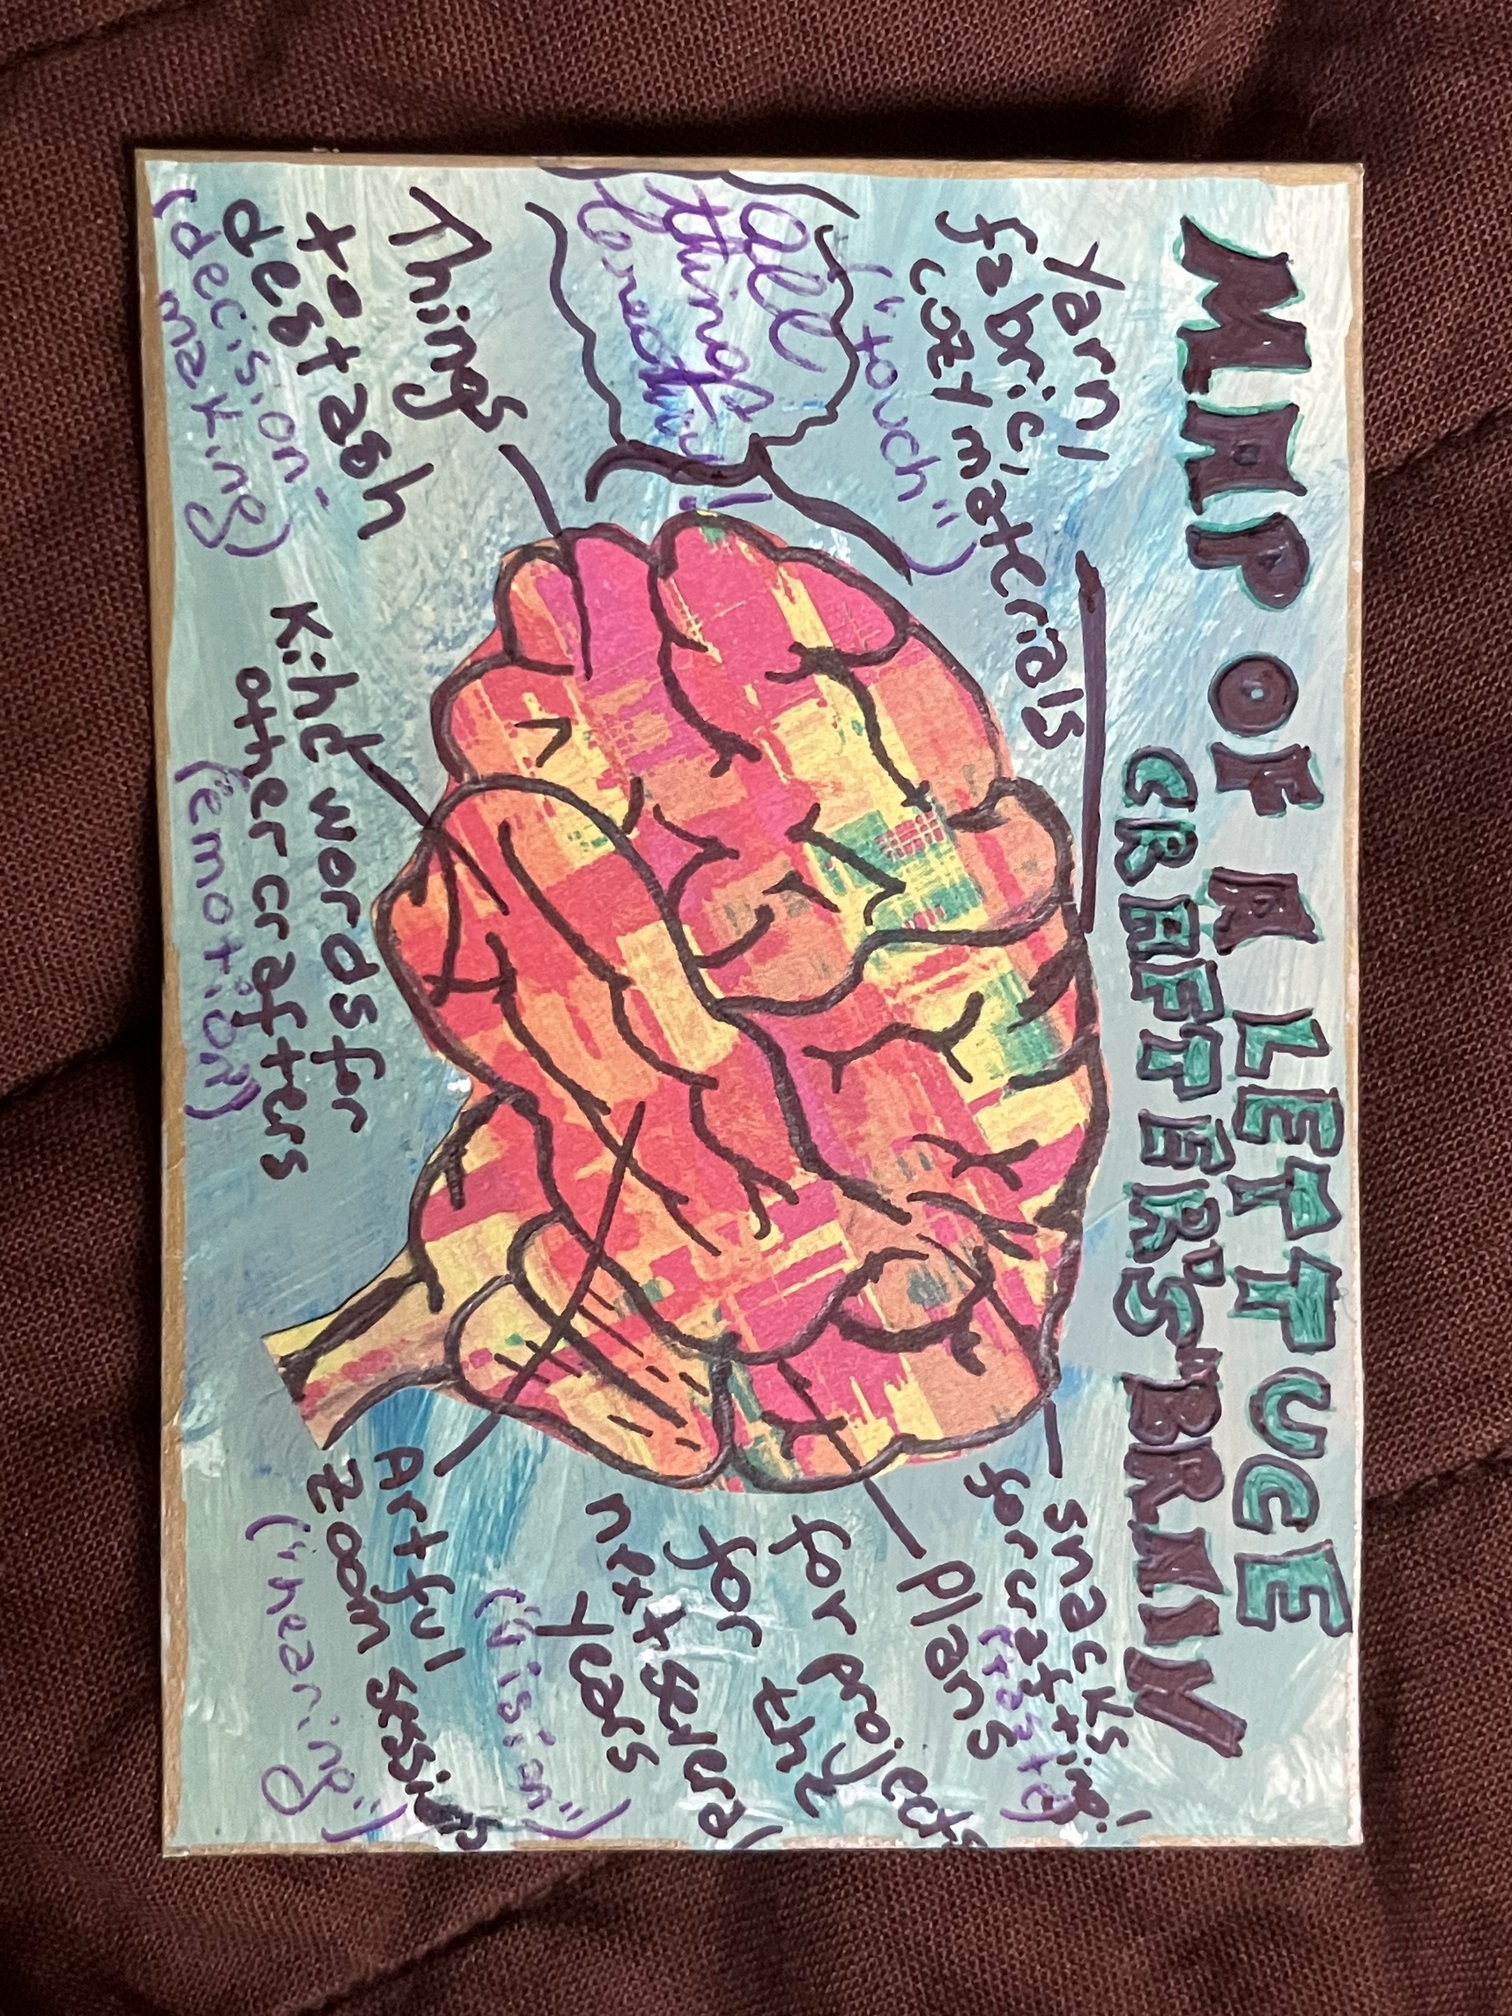 MAP OF A LETTUCE
CRAFTER'S "BRAIN
yarn/
fabric/
cozy materials
("touch")
snacks
for crafting!
(taste)
All
things
Creativity!
plans
for projects
for the
next several
years
("vision")
Things
to
destash
(decision-
making)
Kind words for
other crafters
("emotion")
Artful
zoom sessions
("hearing")